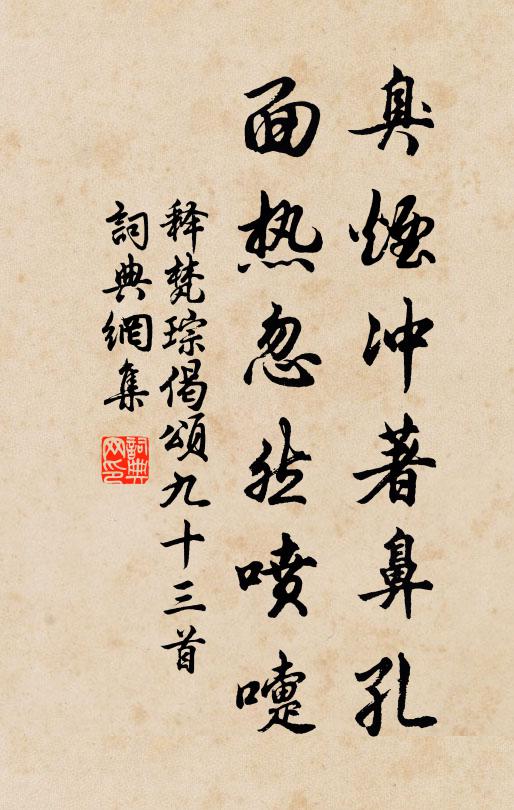 臭煙冲著鼻孔
面热忽然喷嚏
释梵琮偈颂九十三首
詞典網集
詞典网印